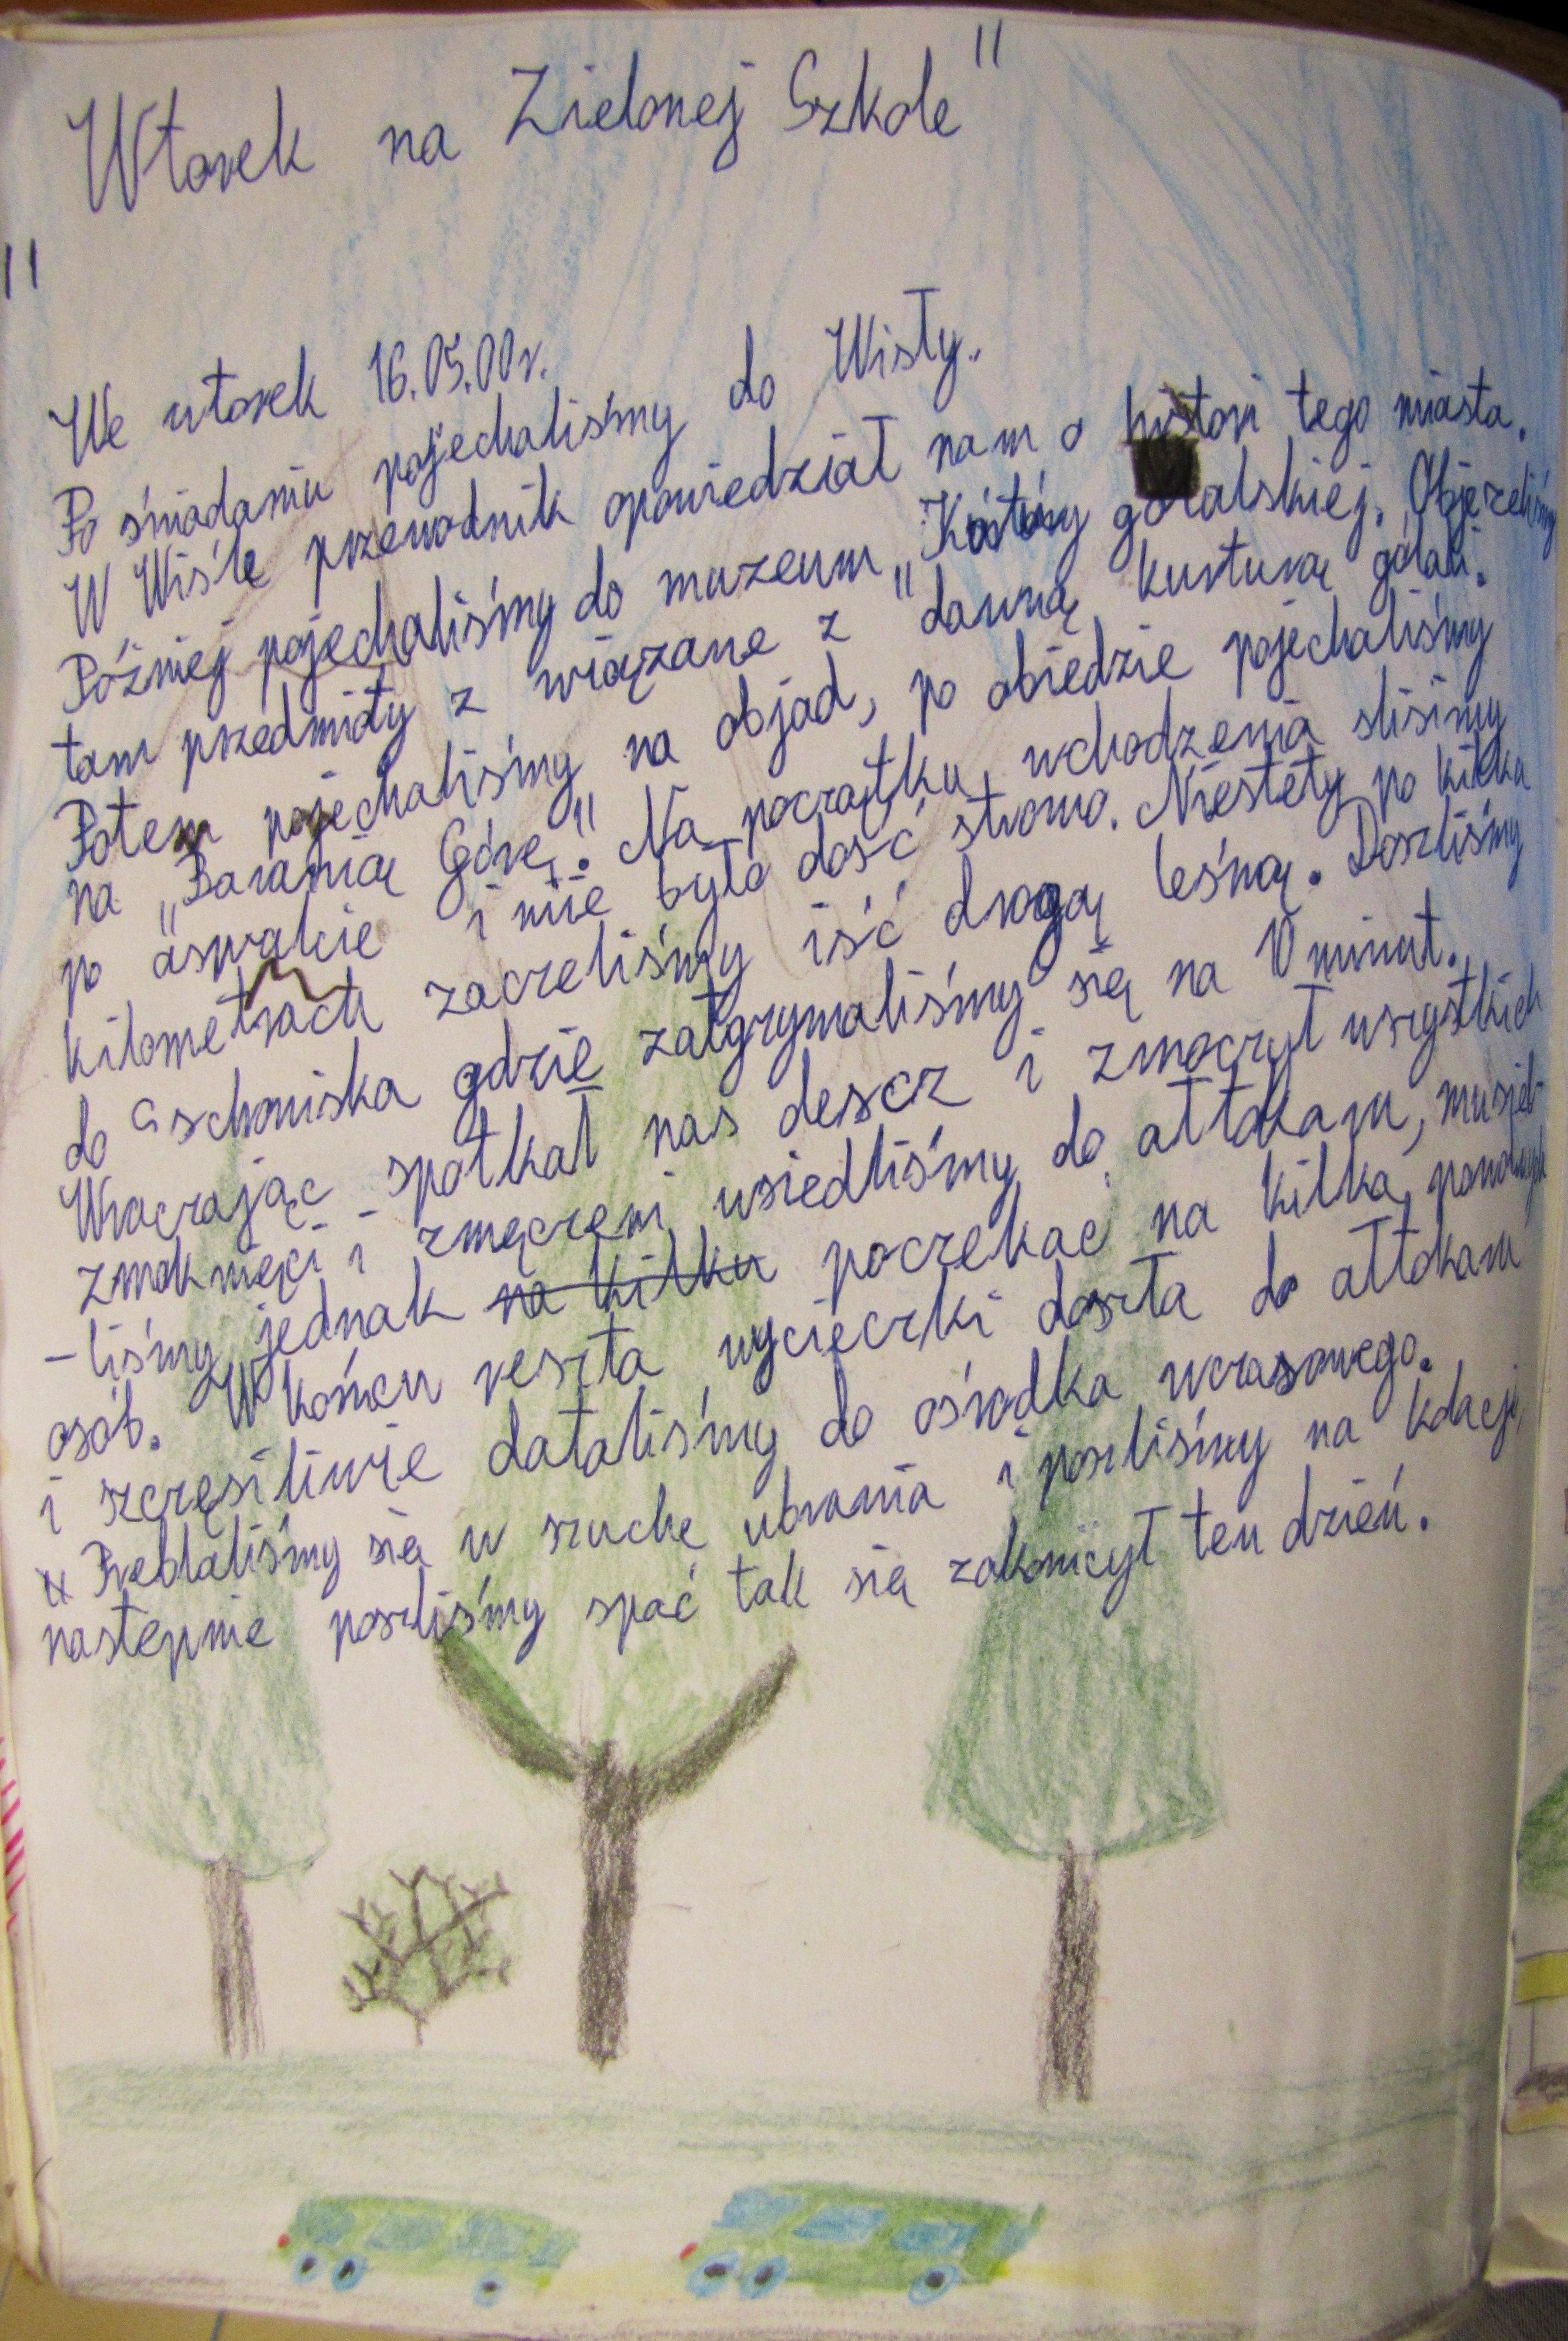 "Wtorek na Zielonej Szkole"
We wtorek 16.05.00r.
Po śniadaniu pojechaliśmy do Wisły.
W Wiśle przewodnik opowiedział nam o histori tego miasta.
Później pojechaliśmy do muzeum „ góralskiej. Objęzeliśmy
tam przedmioty z wiązane z "dawną kurturą górali.
Potem pojechaliśmy na objad, po obiedzie pojechaliśmy
na „Baranią Górę." Na początku wchodzenia sliśimy
po aswalcie i nie było dość stromo. Niestety po kilku
kilometrach zaczeliśmy iść drogą leśną. Doszliśmy
do schoniska gdzie zatgrzymaliśmy się na 10 minut.
Wraczając spotkał nas descz i zmoczył wszystkich
zmoknięci i zmęczeni wsiedliśmy do ałtokaru, musied-
-liśmy jednak na kilku poczekać na kilka
osób. W końcu reszta wycieczki doszła do ałtokaru
i szczęsiliwie dataliśmy do ośrodka wczasowego.
Prebtaliśmy się w szuche ubrania i poszliśmy na kdacje,
nastempnie poszliśmy spać tak się zakonicył ten dzień.